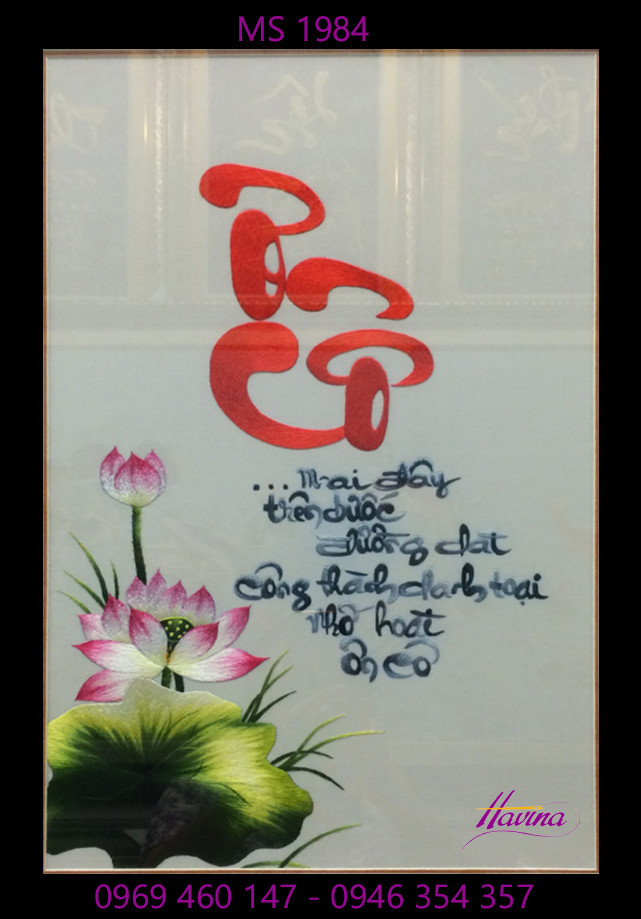 MS 1984
Ơn
Cô
...mai đây
trên bước
đường dài
công thành danh toại
nhớ hoài
ơn cô
Havina
0969 460 147 - 0946 354 357